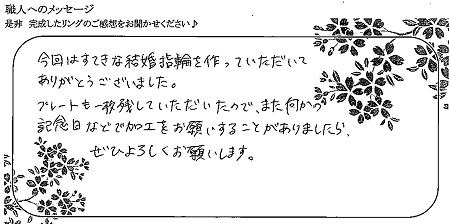 職人へのメッセージ
是非 完成したリングのご感想をお聞かせください♪
今回はすてきな結婚指輪を作っていただいて
ありがとうございました。
プレートも一枚残していただいたので、また何かの
記念日などで加工をお願いすることがありましたら、
ぜひよろしくお願いします。